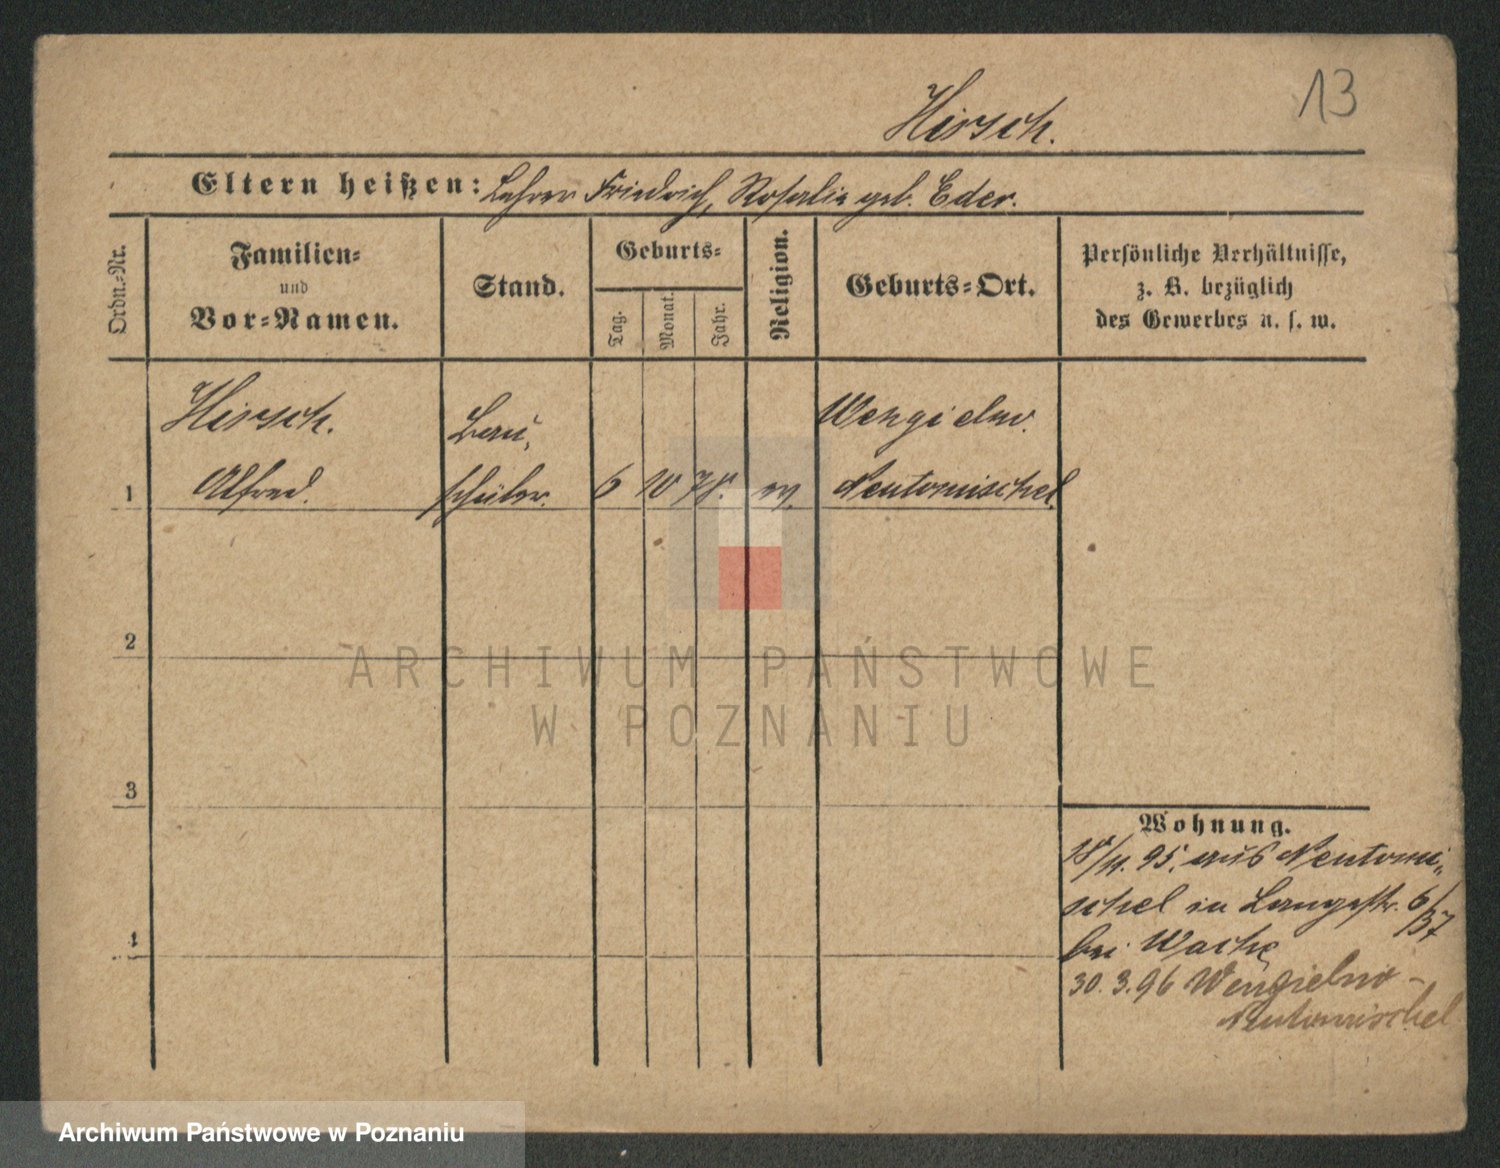 13
Hirsch.
Eltern heißen: Lehrer Friedrich, Rosalie geb. Eder.
Ordn.-Nr.
Familien-
und
Vor-Namen.
Stand.
Geburts-
Tag.
Monat.
Jahr.
Religion.
Geburts-Ort.
Persönliche Verhältnisse,
z. B. bezüglich
des Gewerbes u. s. w.
Hirsch. Bau, Wengielno.
1 Alfred. schüler. 6 10 78. ev. Neutomischel
2
3
4
Wohnung.
18/11. 95. aus Neutomi„
schel in Langestr. 6/37
bei Wache
30.3.96 Wengielno -
Neutomischel
ARCHIWUM PAŃSTWOWE
W POZNANIU
Archiwum Państwowe w Poznaniu